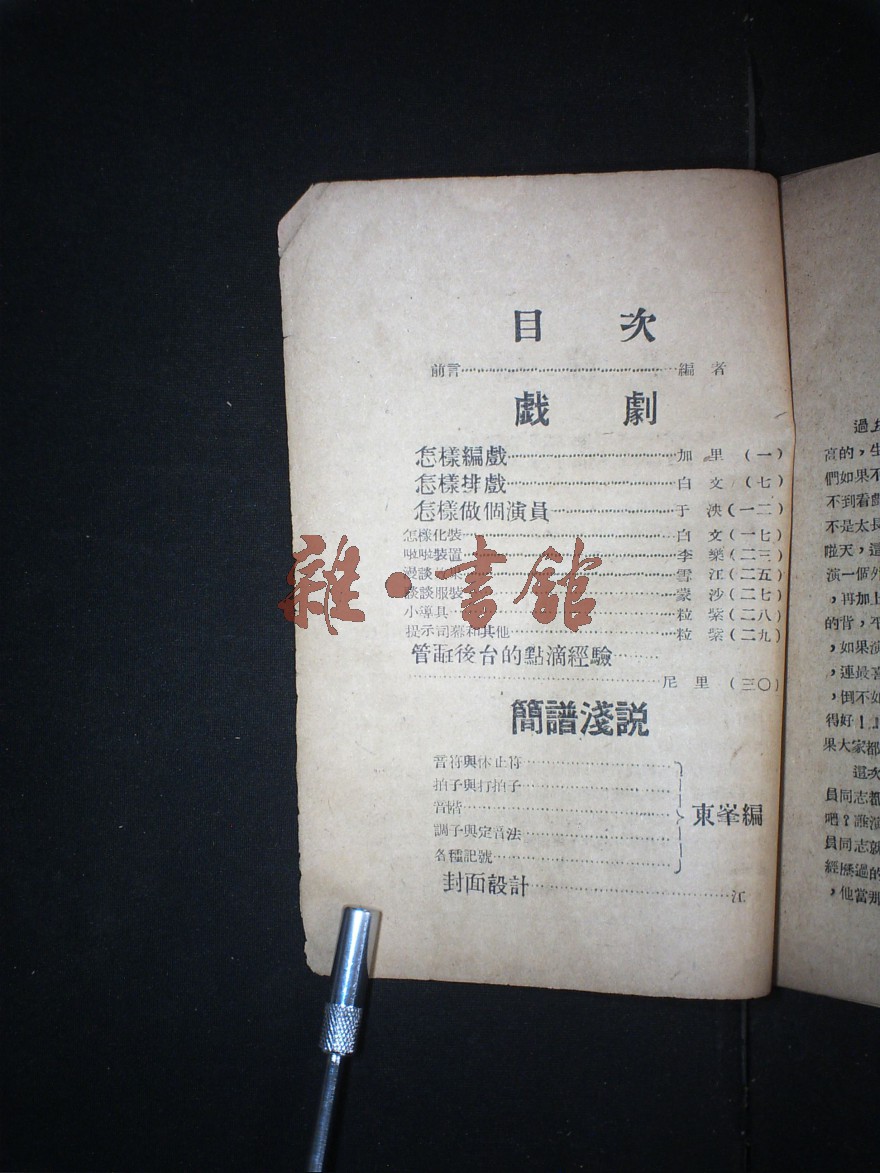 目次
前言……編者
戲劇
怎樣編戲……加里(一)
怎樣排戲……白文(七)
怎樣做個演員……于泱(一二)
怎樣化裝……白文(一七)
裝置……李樂(二三)
漫談……雪江(二五)
談談服裝……蒙沙(二七)
小導具……粒紫(二八)
提示司幕和其他……粒紫(二九)
管理後台的點滴經驗……
……尼里(三〇)
簡譜淺説
音符與休止符……
拍子與打拍子……
音階……
東峯編
調子與定音法……
各種記號……
封面設計……江
雜·書館
過
高的，生
們如果不
不到看戲
不是太長
啦天，這
演一個
，再加上
的背，不
，如果演
，連最喜
，倒不如
得好！
果大家都
這次
員同志都
吧？誰演
員同志就
經歷過的
，他當那